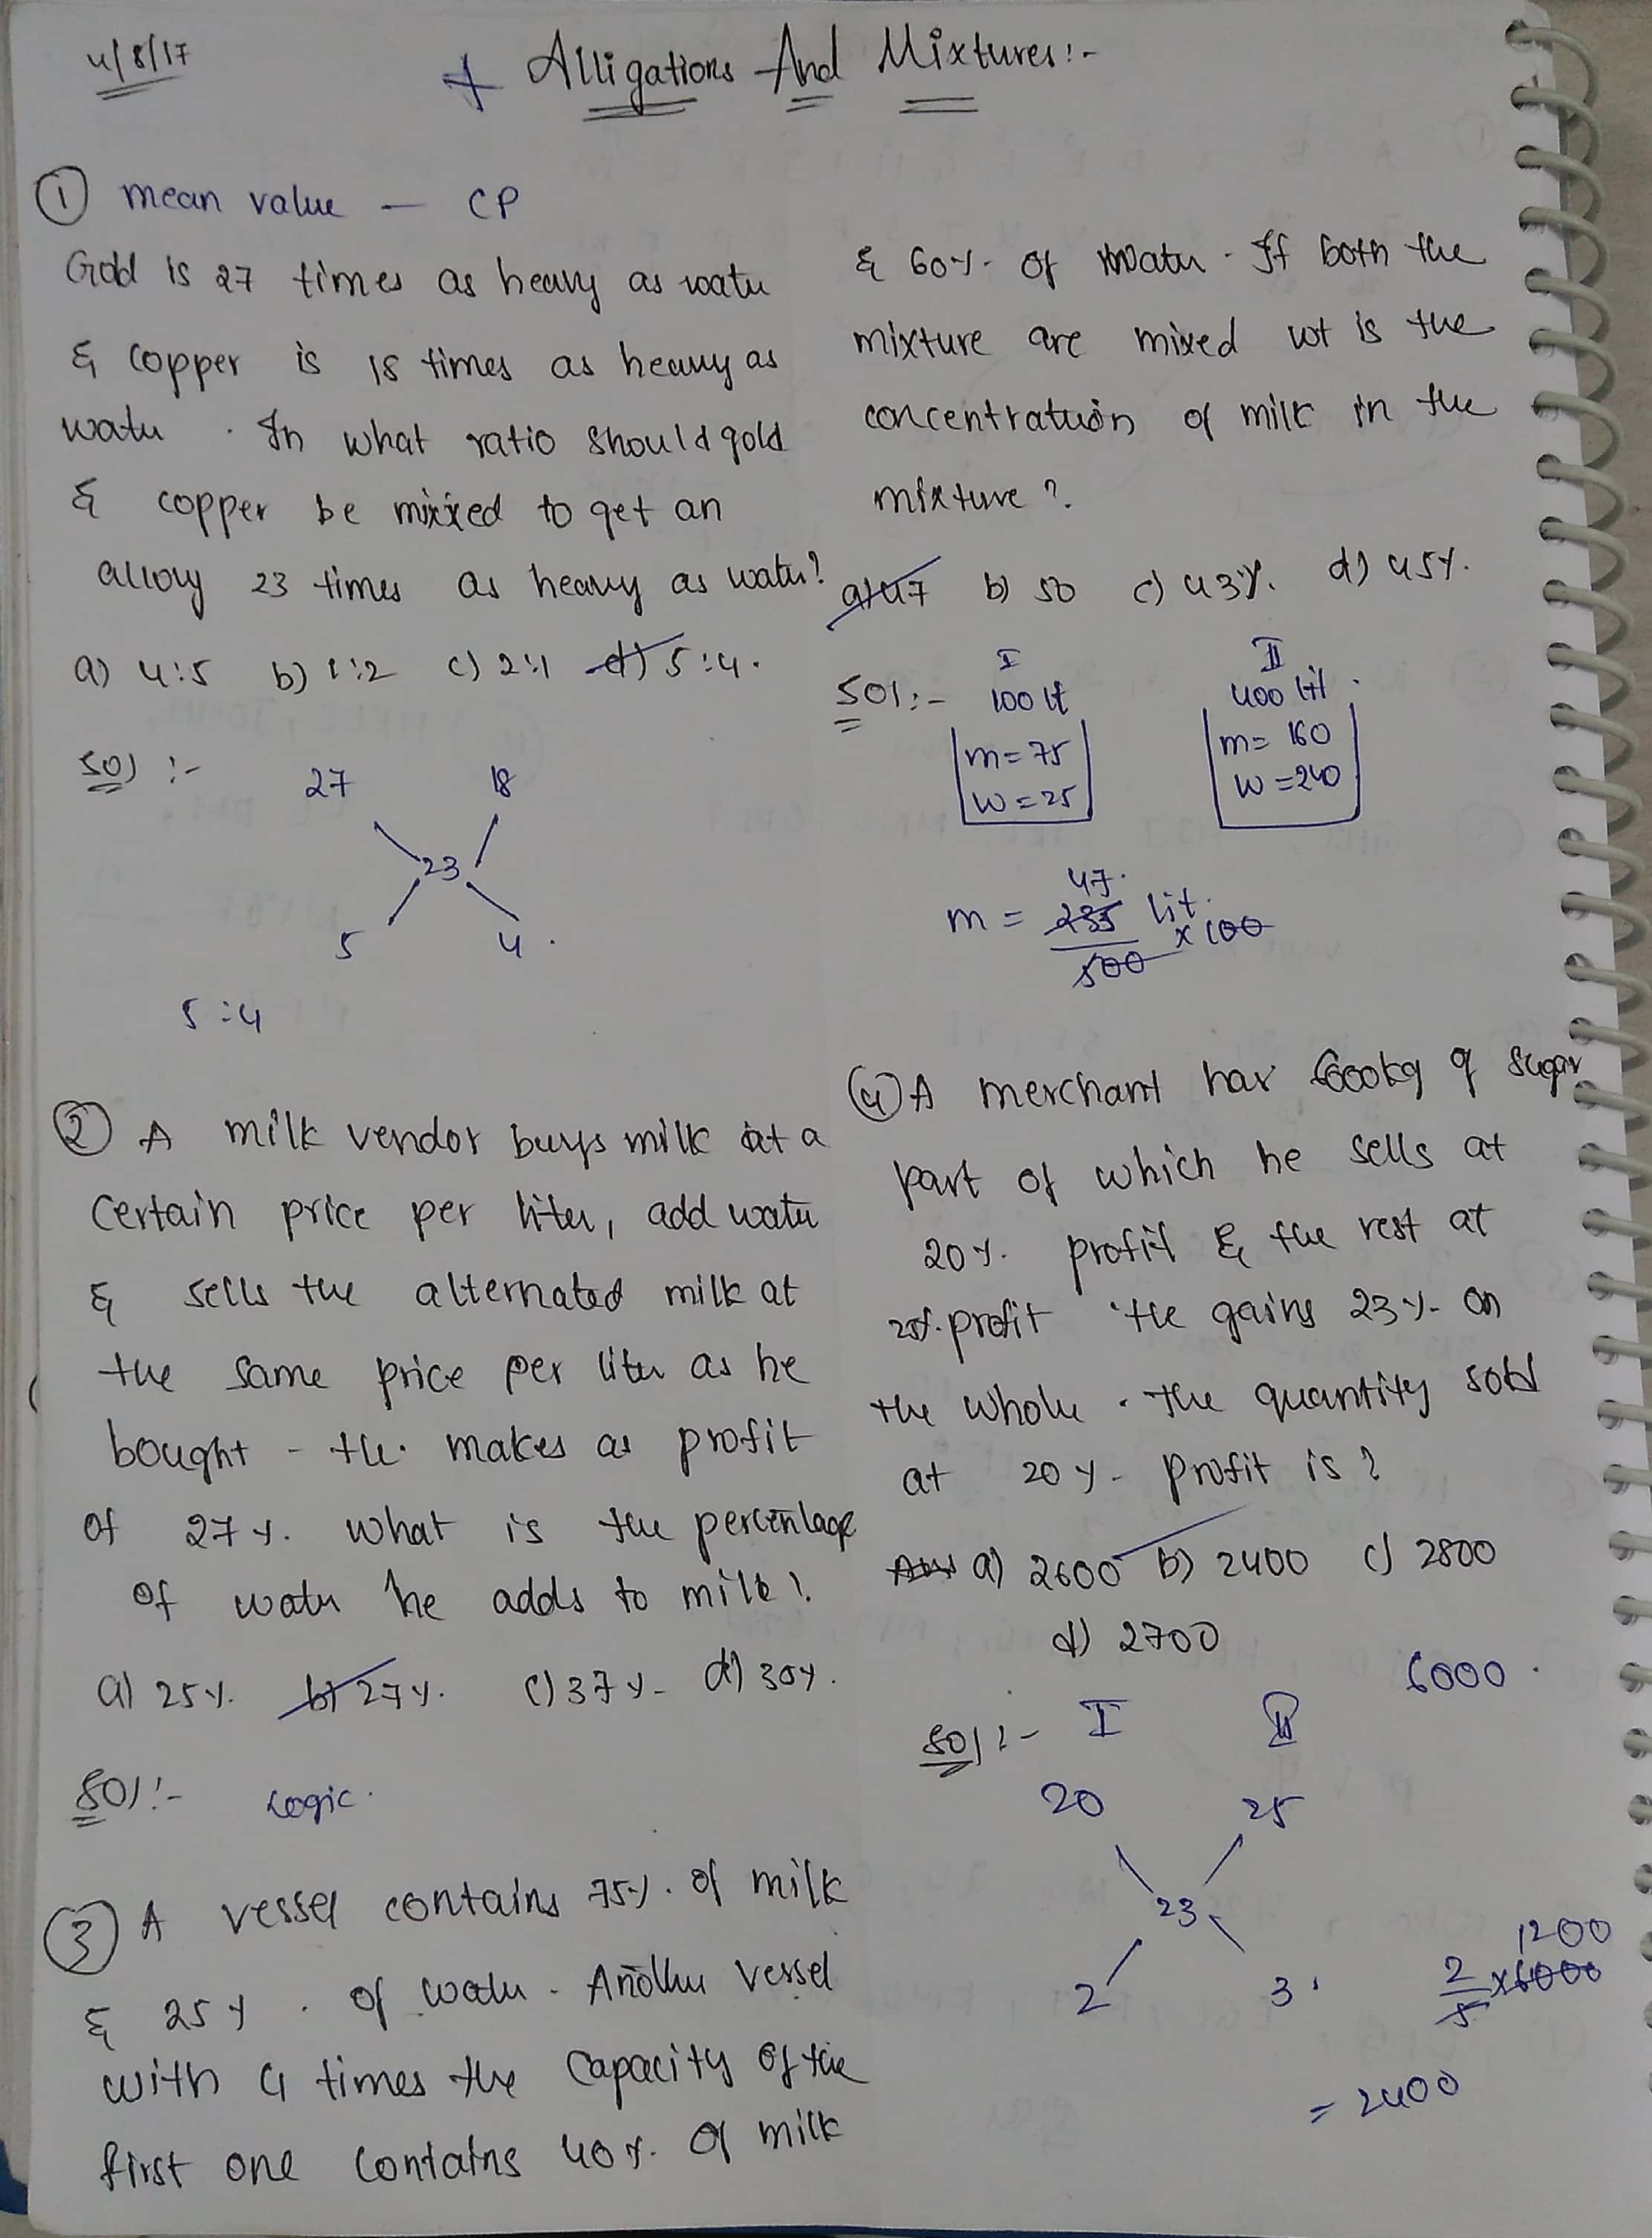 4/8/17
+ Alligations And Mixtures:-
① mean value - CP
Gold is 27 times as heavy as water
& copper is 18 times as heavy as
water . In what ratio should gold
& copper be mixed to get an
alloy 23 times as heavy as water?
a) 4:5 b) 1:2 c) 2:1 d) 5:4.
Sol :-
27 18
23
5 4 .
5:4
② A milk vendor buys milk at a
certain price per liter, add water
& sells the alternated milk at
the same price per liter as he
bought - He makes as profit
of 27%. What is the percentage
of water he adds to milk?
a) 25%. b) 27%. c) 37%- d) 30%.
Sol:- Logic.
③ A vessel contains 75%. of milk
& 25% . of water . Another vessel
with 4 times the capacity of the
first one contains 40%. of milk
& 60%- of water - If both the
mixture are mixed wt is the
concentration of milk in the
mixture?
a) 47 b) 50 c) 43%. d) 45%.
Sol:-
I II
100 lt 400 lit.
m= 75 m= 160
W = 25 W = 240
47.
m = 235 lit. x 100
500
④ A merchant has 6000kg of sugar
part of which he sells at
20%. profit & the rest at
25%. profit He gains 23%- on
the whole . The quantity sold
at 20%- profit is?
Ans a) 2600 b) 2400 c) 2800
d) 2700
6000 .
Sol:- I II
20 25
23
2 3 .
1200
2/5 x 6000
= 2400